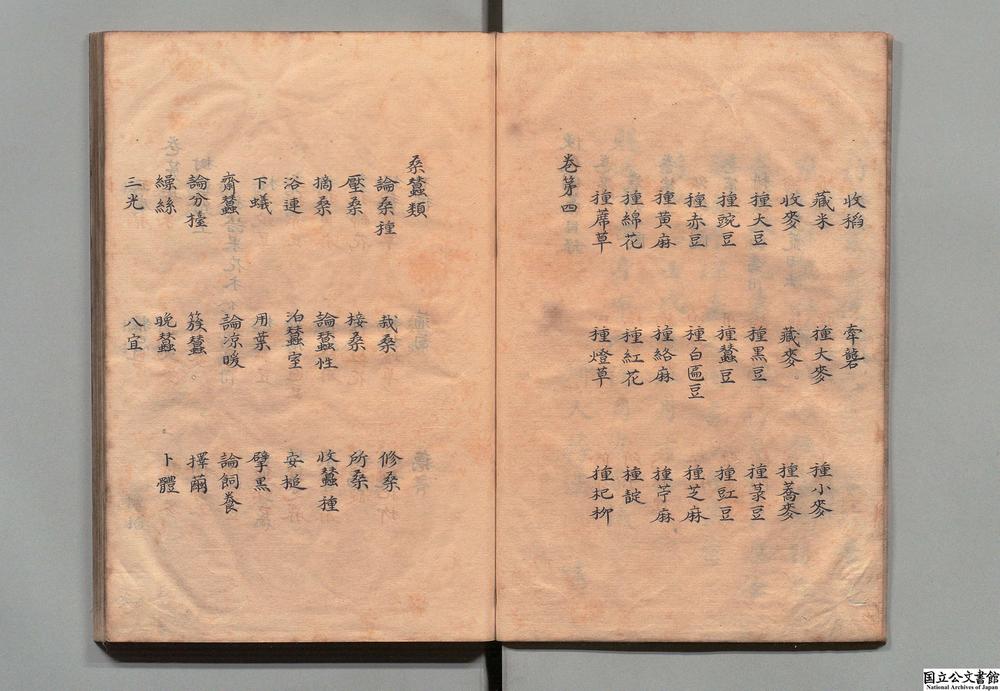 收稻　牽礱
藏米　種大麥　種小麥
收麥　藏麥。　種蕎麥
種大豆　種黑豆　種菉豆
種豌豆　種蠶豆　種豇豆
種赤豆　種白匾豆　種芝麻
種黃麻　種絡麻　種苧麻
種綿花　種紅花　種靛
種蓆草　種燈草　種杞柳
卷第四
桑蠶類
論桑種　栽桑　修桑
壓桑　接桑　斫桑
摘桑　論蠶性　收蠶種
浴連　泊蠶室　安槌
下蟻　用葉　擘黑
齋蠶　論涼暖　論飼養
論分擡　簇蠶。　擇繭
繰絲　晚蠶　卜體
三光　八宜
国立公文書館
National Archives of Japan